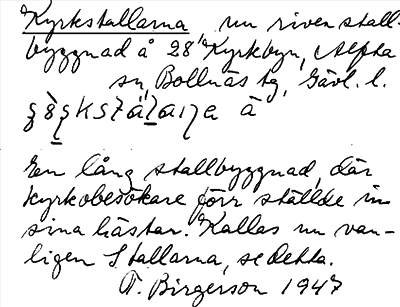 Kyrkstallarna nu riven stall-
byggnad å 28' Kyrkbyn, Alfta
sn, Bollnäs tg, Gävl. l.
à
En lång stallbyggnad, där
kyrkobesökare förr ställde in
sina hästar. Kallas nu van-
ligen Stallarna, se detta.
T. Birgerson 1947